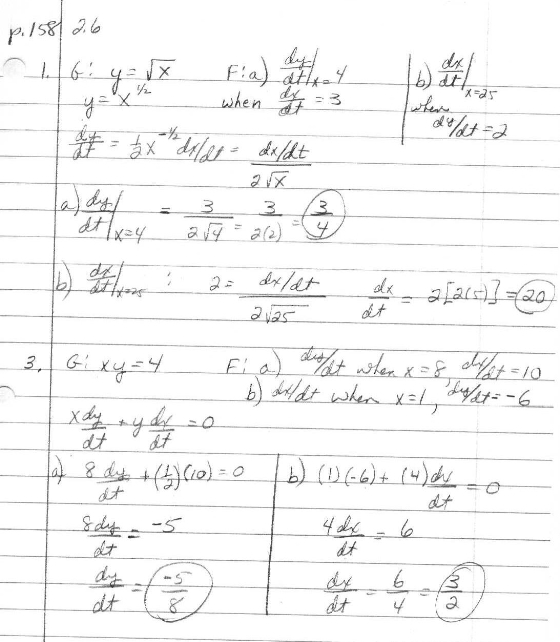 p.158 2.6
1. G: y = √x F: a) dy/dt|x=4 b) dx/dt|x=25
y = x^1/2 when dx/dt = 3 when dy/dt = 2
dy/dt = 1/2 x^-1/2 dx/dt = dx/dt / 2√x
a) dy/dt|x=4 = 3/2√4 = 3/2(2) = 3/4
b) dx/dt|x=25 : 2 = dx/dt / 2√25 dx/dt = 2[2(5)] = 20
3. G: xy = 4 F: a) dy/dt when x = 8, dx/dt = 10
b) dx/dt when x = 1, dy/dt = -6
x dy/dt + y dx/dt = 0
a) 8 dy/dt + (1/2)(10) = 0
8 dy/dt = -5
dy/dt = -5/8
b) (1)(-6) + (4) dx/dt = 0
4 dx/dt = 6
dx/dt = 6/4 = 3/2